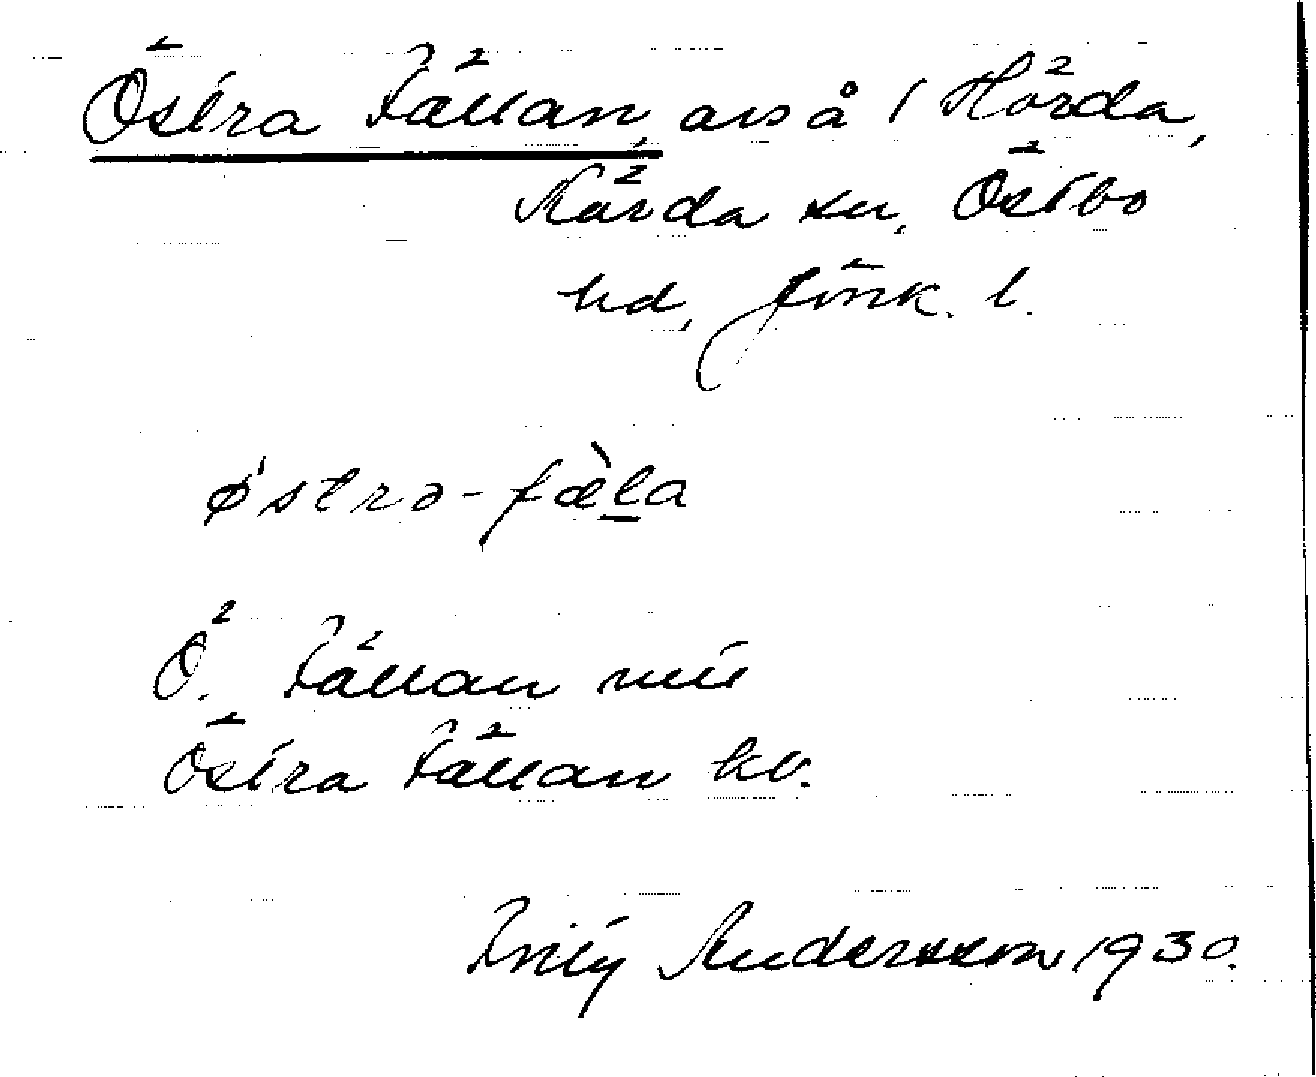 Östra Fällan, avs å / Hörda,
Kärda sn, Östbo
hd, Jönk. l.
østrə-fæ̀la
Ö. Fällan
Östra Fällan kv.
Andersson 1930.